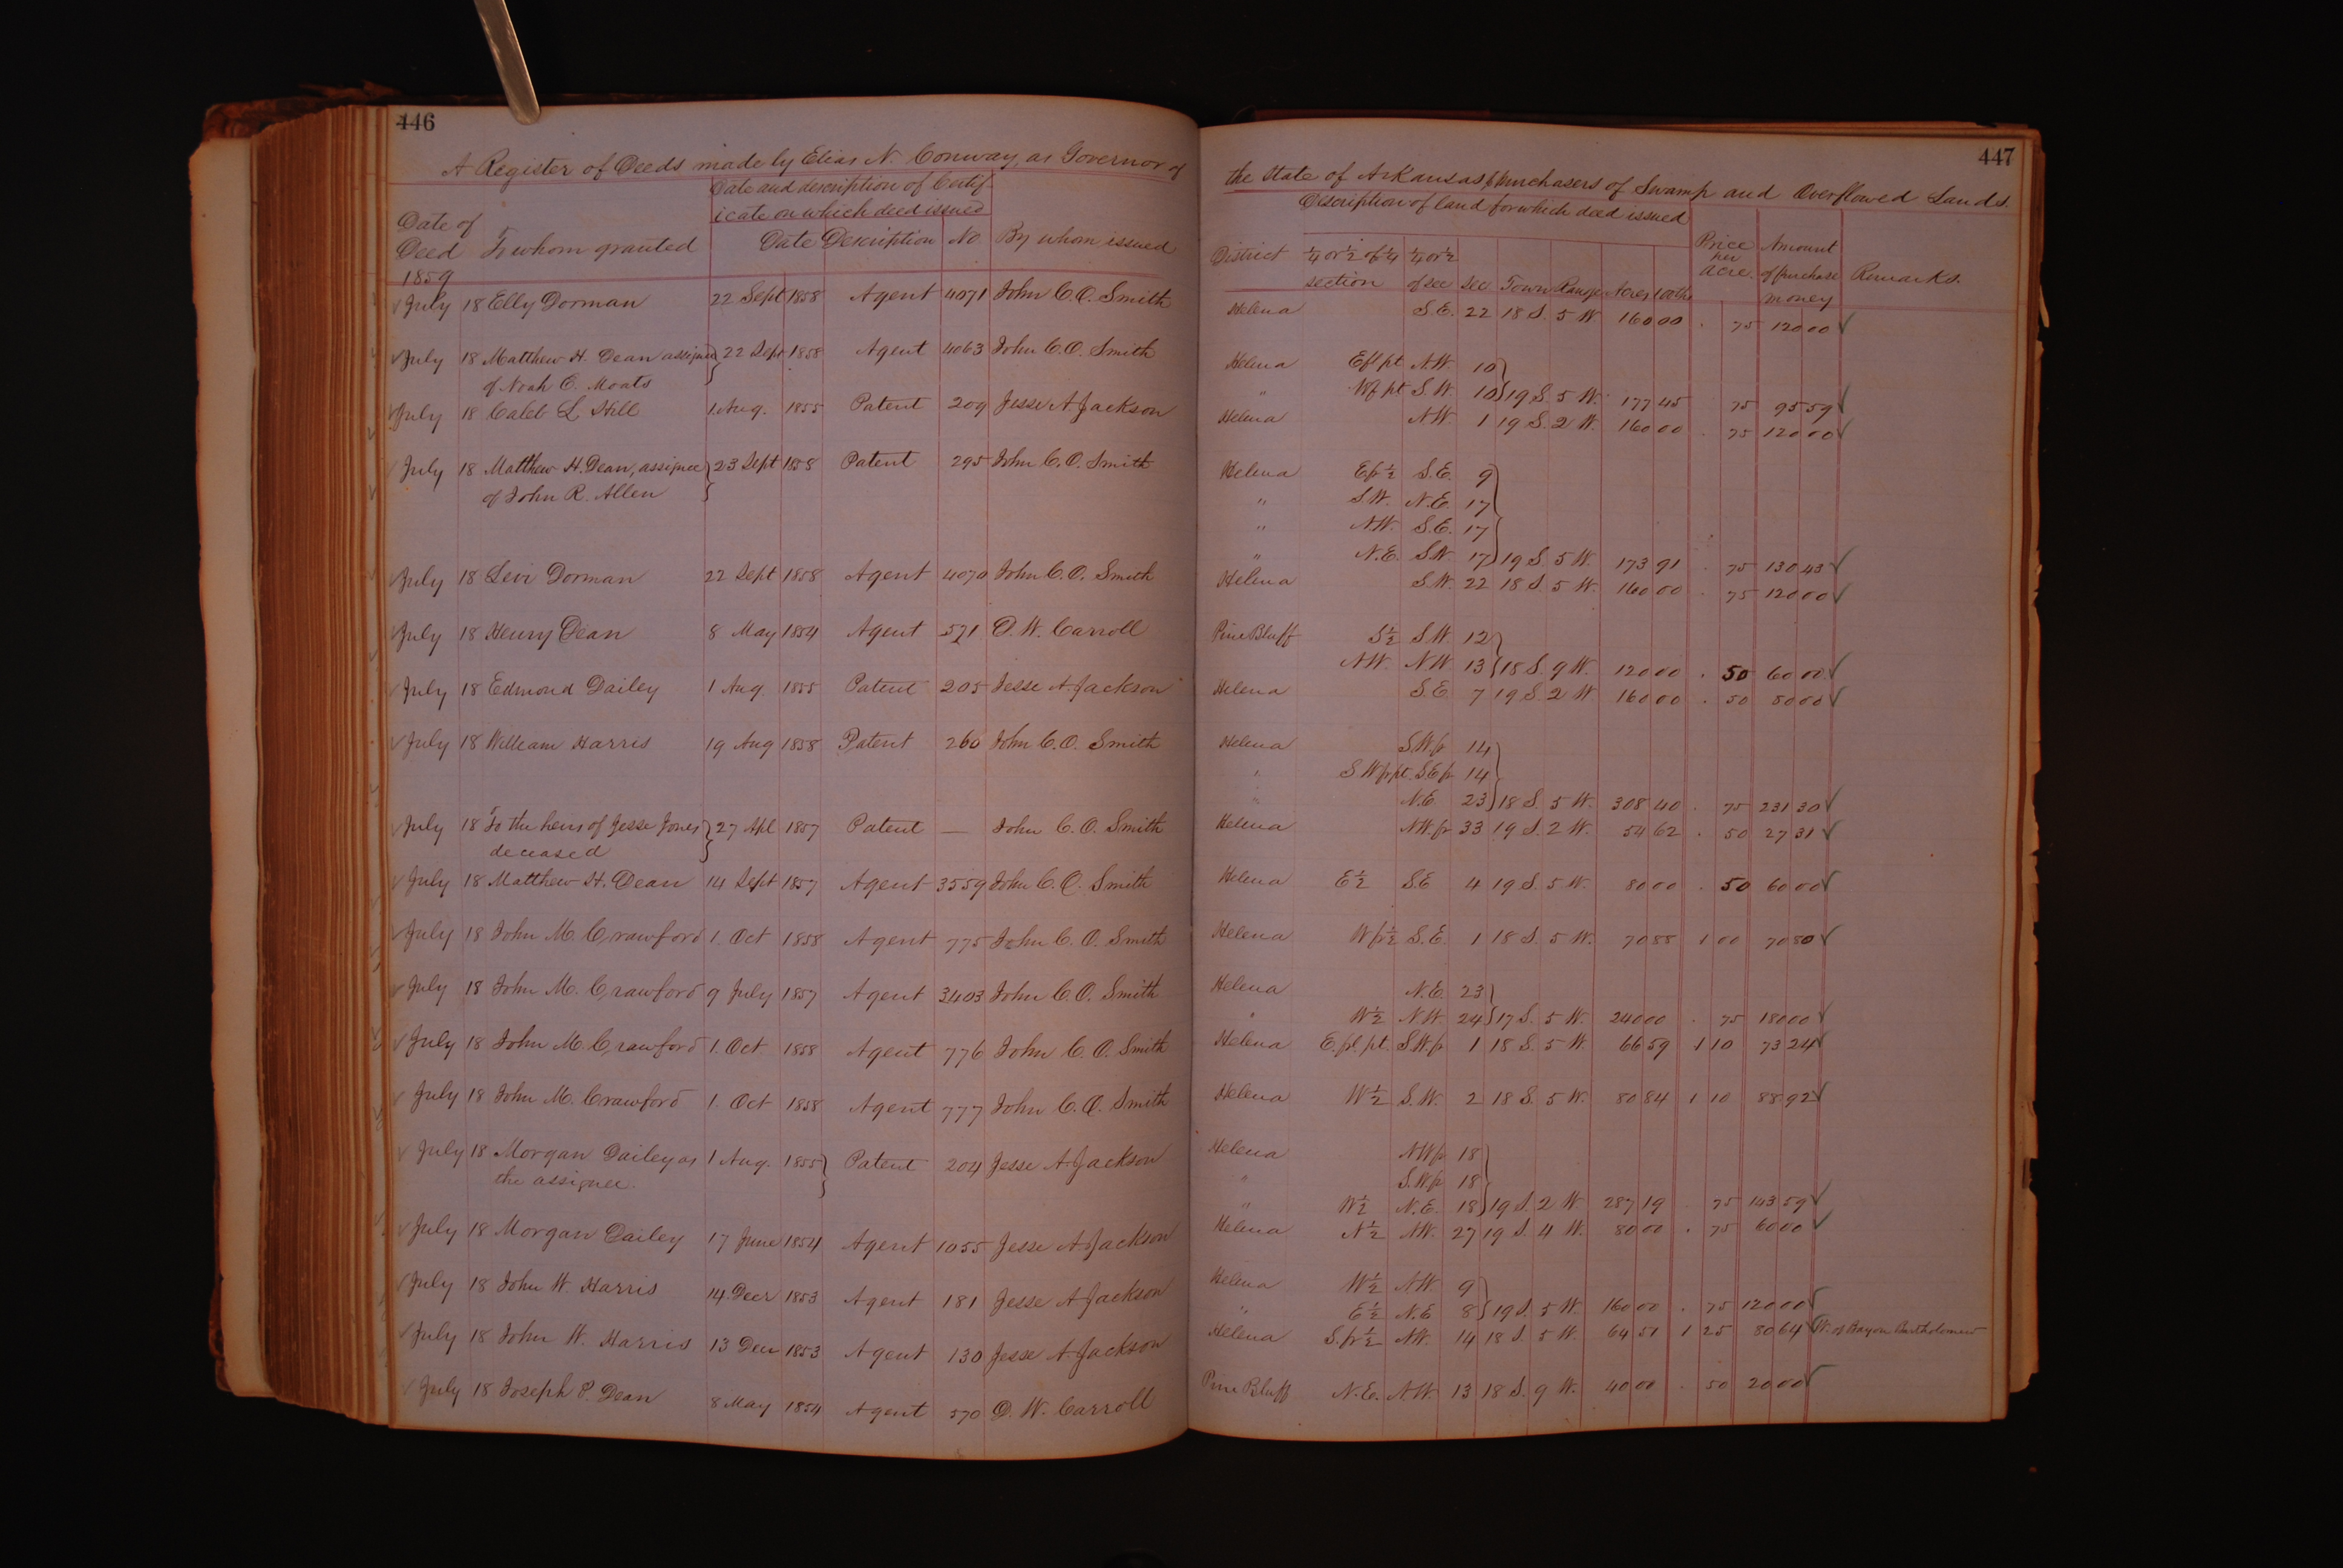 446
A Register of Deeds made by Elias N. Conway, as Governor of
Date and description of Certif-
icate on which deed issued
Date of
Deed To whom granted Date Description No By whom issued
1859
July 18 Elly Dorman 22 Sept 1858 Agent 4071 John C.O. Smith
July 18 Matthew H. Dean assignee 22 Sept 1858 Agent 4063 John C.O. Smith
of Noah C. Moats
July 18 Caleb L. Hill 1 Aug. 1855 Patent 209 Jesse A Jackson
July 18 Matthew H. Dean, assignee 23 Sept 1858 Patent 295 John C.O. Smith
of John R. Allen
July 18 Levi Dorman 22 Sept 1858 Agent 4070 John C.O. Smith
July 18 Henry Dean 8 May 1854 Agent 571 D.W. Carroll
July 18 Edmond Dailey 1 Aug. 1855 Patent 205 Jesse A Jackson
July 18 William Harris 19 Aug 1858 Patent 260 John C.O. Smith
July 18 To the heirs of Jesse Jones 27 Apl 1857 Patent — John C.O. Smith
deceased
July 18 Matthew H. Dean 14 Sept 1857 Agent 3559 John C.O. Smith
July 18 John M. Crawford 1. Oct 1858 Agent 775 John C.O. Smith
July 18 John M. Crawford 9 July 1857 Agent 3403 John C.O. Smith
July 18 John M. Crawford 1. Oct 1858 Agent 776 John C.O. Smith
July 18 John M. Crawford 1. Oct 1858 Agent 777 John C.O. Smith
July 18 Morgan Dailey as 1 Aug. 1855 Patent 204 Jesse A Jackson
the assignee.
July 18 Morgan Dailey 17 June 1854 Agent 1055 Jesse A Jackson
July 18 John W. Harris 14 Decr 1853 Agent 181 Jesse A Jackson
July 18 John W. Harris 13 Decr 1853 Agent 130 Jesse A Jackson
July 18 Joseph P. Dean 8 May 1854 Agent 570 D.W. Carroll
447
the State of Arkansas, to purchasers of Swamp and Overflowed Lands
Description of land for which deed issued
District ¼ or ½ of ¼ ¼ or ½ Price per Amount
section of sec Sec Town Range Acres 100ths Acre. of purchase Remarks.
money
Helena S.E. 22 18 S. 5 W 160 00 . 75 120 00
Helena Efl pt N.W. 10
" Wf pt S.W. 10 19 S. 5 W. 177 45 75 95 59
Helena N.W. 1 19 S. 2 W. 160 00 . 75 120 00
Helena E fr ½ S.E. 9
" S.W. N.E. 17
" N.W. S.E. 17
" N.E. S.W. 17 19 S. 5 W. 173 91 . 75 130 43
Helena S.W. 22 18 S. 5 W. 160 00 . 75 120 00
Pine Bluff S½ S.W. 12
N.W. N.W. 13 18 S. 9 W. 120 00 . 50 60 00
Helena S.E. 7 19 S. 2 W 160 00 . 50 80 00
Helena S.W. fr 14
" S W fr pt. S.E. fr 14
" N.E. 23 18 S. 5 W. 308 40 . 75 231 30
Helena N.W. fr 33 19 S. 2 W. 54 62 . 50 27 31
Helena E½ S.E 4 19 S. 5 W. 80 00 . 50 60 00
Helena W fr ½ S.E. 1 18 S. 5 W. 70 88 1 00 70 80
Helena N.E. 23
" W½ N.W. 24 17 S. 5 W. 240 00 . 75 180 00
Helena E. fl. pt. S.W. fr 1 18 S. 5 W. 66 59 1 10 73 24
Helena W½ S.W. 2 18 S. 5 W. 80 84 1 10 88 92
Helena N.W. fr 18
" S.W. fr 18
" W½ N.E. 18 19 S. 2 W 287 19 . 75 143 59
Helena N½ N.W. 27 19 S. 4 W. 80 00 . 75 60 00
Helena W½ N.W. 9
" E½ N.E 8 19 S. 5 W. 160 00 . 75 120 00
Helena S. fr ½ N.W. 14 18 S. 5 W. 64 51 1 25 80 64 W. of Bayou Bartholomew
Pine Bluff N.E. N.W. 13 18 S. 9 W. 40 00 . 50 20 00